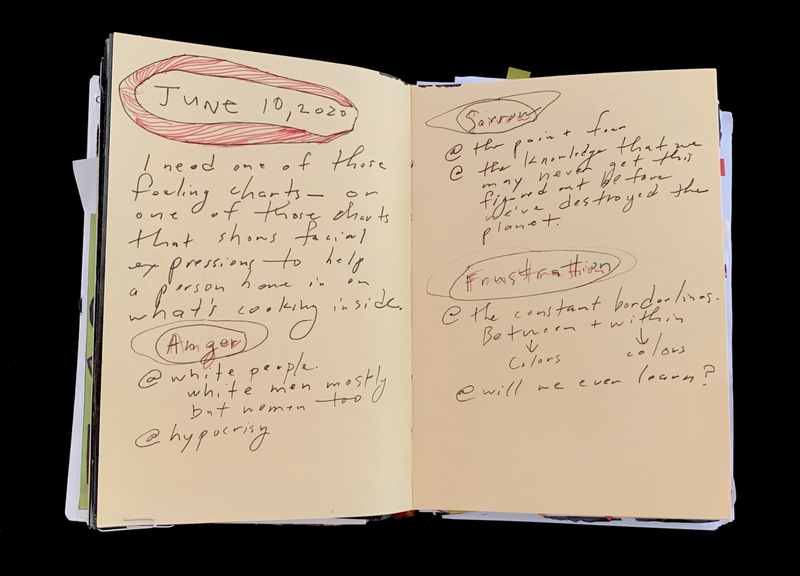 JUNE 10, 2020
I need one of those
feeling charts— or
one of those charts
that shows facial
expressions to help
a person hone in on
what's cooking inside.
Anger
@ white people.
white men mostly
but women too
@ hypocrisy
Sorrow
@ the pain + fear
@ the knowledge that we
may never get this
figured out before
we've destroyed the
planet.
Frustration
@ the constant borderlines.
Between + within
↓ ↓
colors colors
@ will we ever learn?